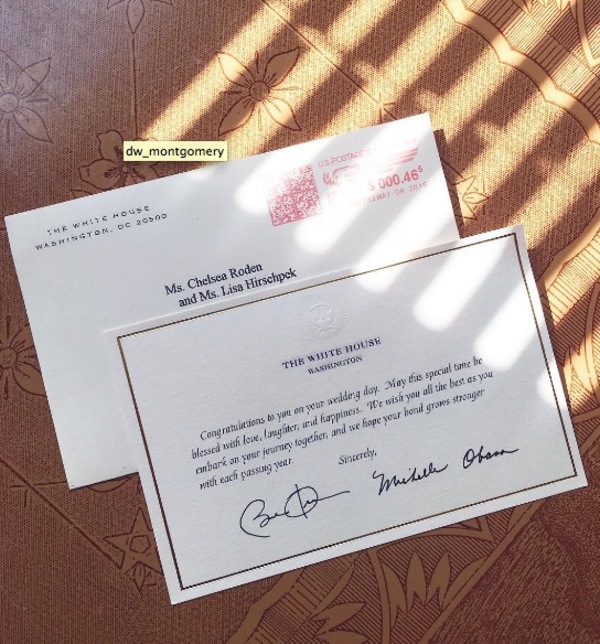 dw_montgomery
US POSTAGE
$ 000.46⁵
THE WHITE HOUSE
WASHINGTON, DC 20500
Ms. Chelsea Roden
and Ms. Lisa Hirschpek
THE WHITE HOUSE
WASHINGTON
Congratulations to you on your wedding day. May this special time be
blessed with love, laughter, and happiness. We wish you all the best as you
embark on your journey together, and we hope your bond grows stronger
with each passing year.
Sincerely,
Michelle Obama